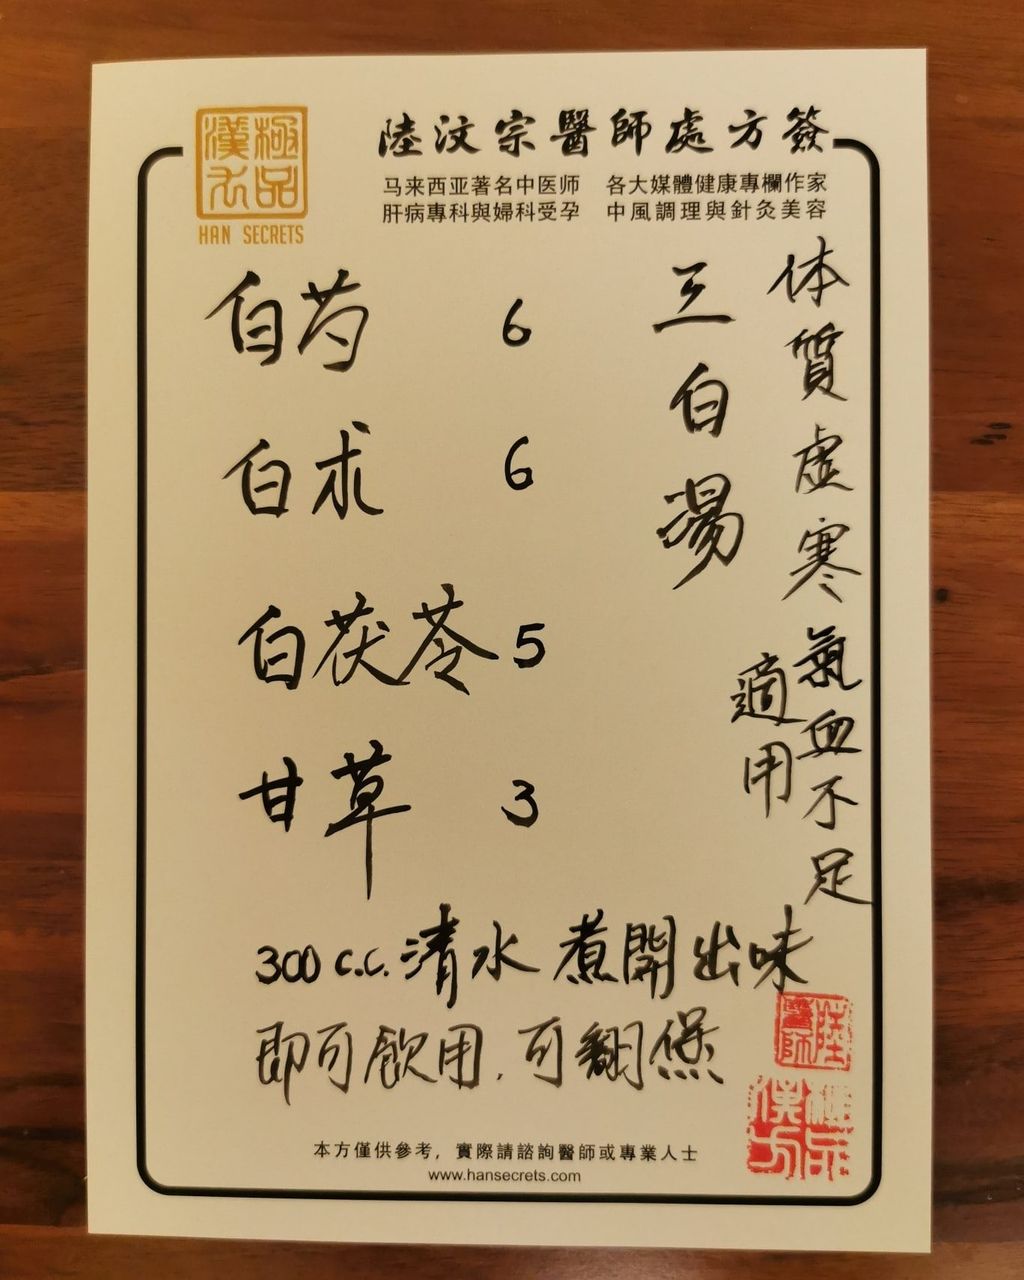 極品漢方
HAN SECRETS
陸汶宗醫師處方簽
马来西亚著名中医师 各大媒體健康專欄作家
肝病專科與婦科受孕 中風調理與針灸美容
体質虛寒氣血不足
適用
三白湯
白芍 6
白术 6
白茯苓 5
甘草 3
300 c.c. 清水 煮開出味
即可飲用.可翻煲
陸醫師
極品漢方
本方僅供參考，實際請諮詢醫師或專業人士
www.hansecrets.com